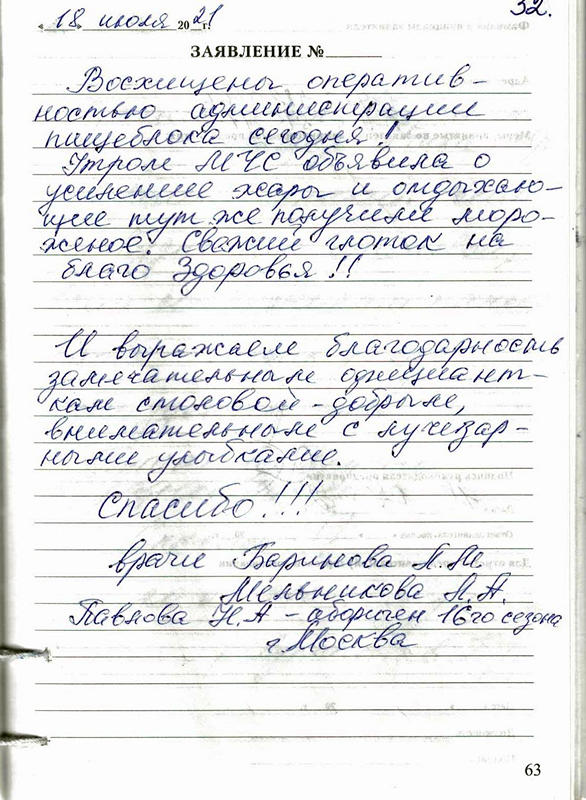 32.
« 18 » июля 2021 г.
ЗАЯВЛЕНИЕ № ______
Восхищены оператив-
ностью администрации
пищеблока сегодня!
Утром МЧС объявила о
усилении жары и отдыхаю-
щие тут же получили моро-
женое. Свежий глоток на
благо Здоровья!!
И выражаем благодарность
замечательным официант-
кам столовой - добрым,
внимательным с лучезар-
ными улыбками.
Спасибо!!!
врачи Баринова Л.М.
Мельникова Л.А.
Павлова Н.А - аборигент 16го сезона
г.Москва
63